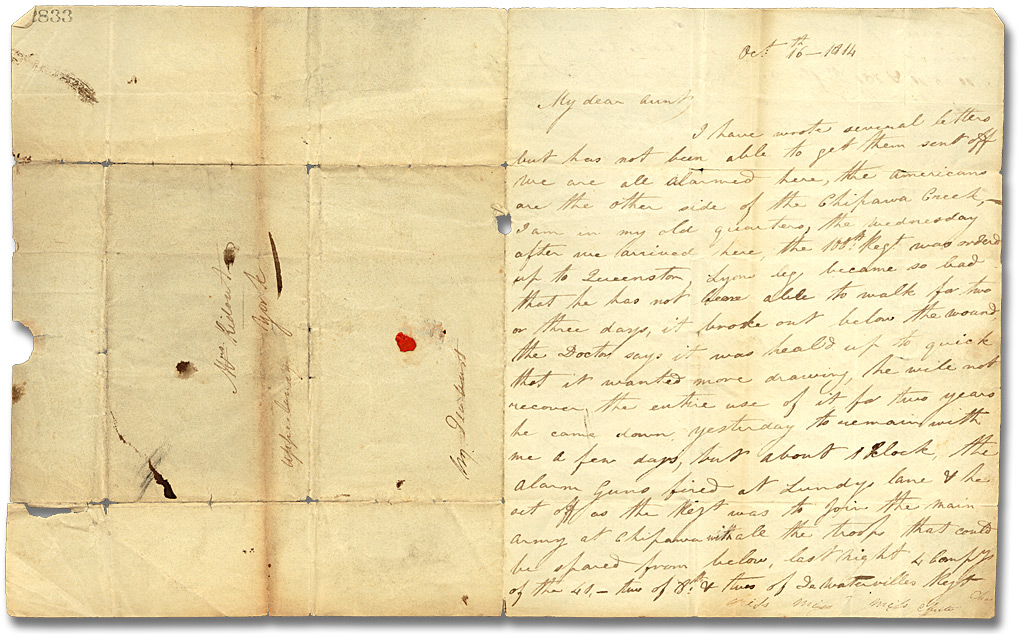 2833
Mrs Ridout
York
upper Canada
by
Octr 16th - 1814
My dear Aunt
I have wrote several letters
but has not been able to get them sent off
We are all alarmed here, the americans
are the other side of the Chipawa Creek,
I am in my old quarters, the Wednesday
after we arrived here, the 100th Regt was orderd
up to Queenston, Lyons leg became so bad
that he has not been able to walk for two
or three days, it broke out below the wound
the Doctor says it was heald up to quick
that it wanted more drawing, he will not
recover the entire use of it for two years
he came down yesterday to remain with
me a few days, but about 1 Klock, the
alarm Guns fired at Lundys lane & he
set off as the Regt was to join the main
army at Chipawa with all the troops that could
be spared from below, last night 4 Compys
of the 41,- two of 8th & two of De Watervilles Regt